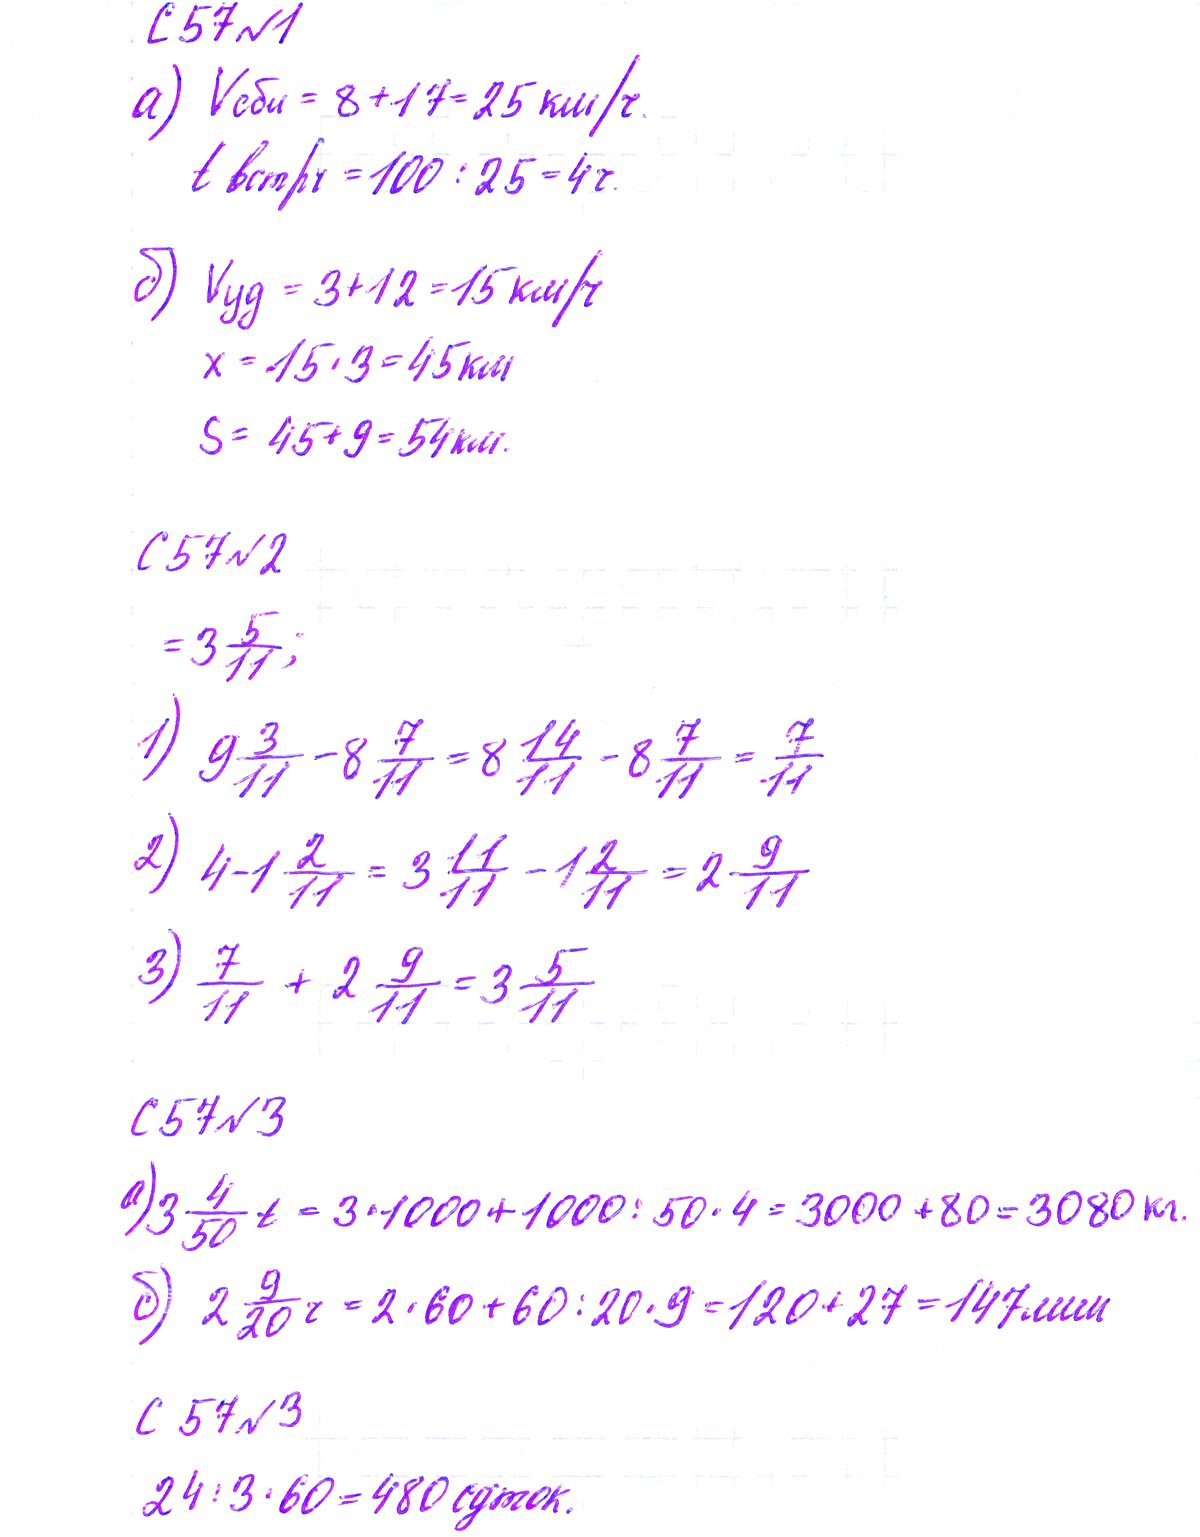 С57№1
а) Vсбл = 8+17=25 км/ч.
t встр = 100:25=4ч.
б) Vуд = 3+12=15 км/ч
x = 15·3=45 км
S = 45+9=54 км.
С57№2
= 3 5/11;
1) 9 3/11 - 8 7/11 = 8 14/11 - 8 7/11 = 7/11
2) 4-1 2/11 = 3 11/11 - 1 2/11 = 2 9/11
3) 7/11 + 2 9/11 = 3 5/11
С57№3
а) 3 4/50 t = 3·1000+1000:50·4=3000+80=3080 кг.
б) 2 9/20 ч = 2·60+60:20·9=120+27=147 мин
С 57№3
24:3·60=480 сдток.